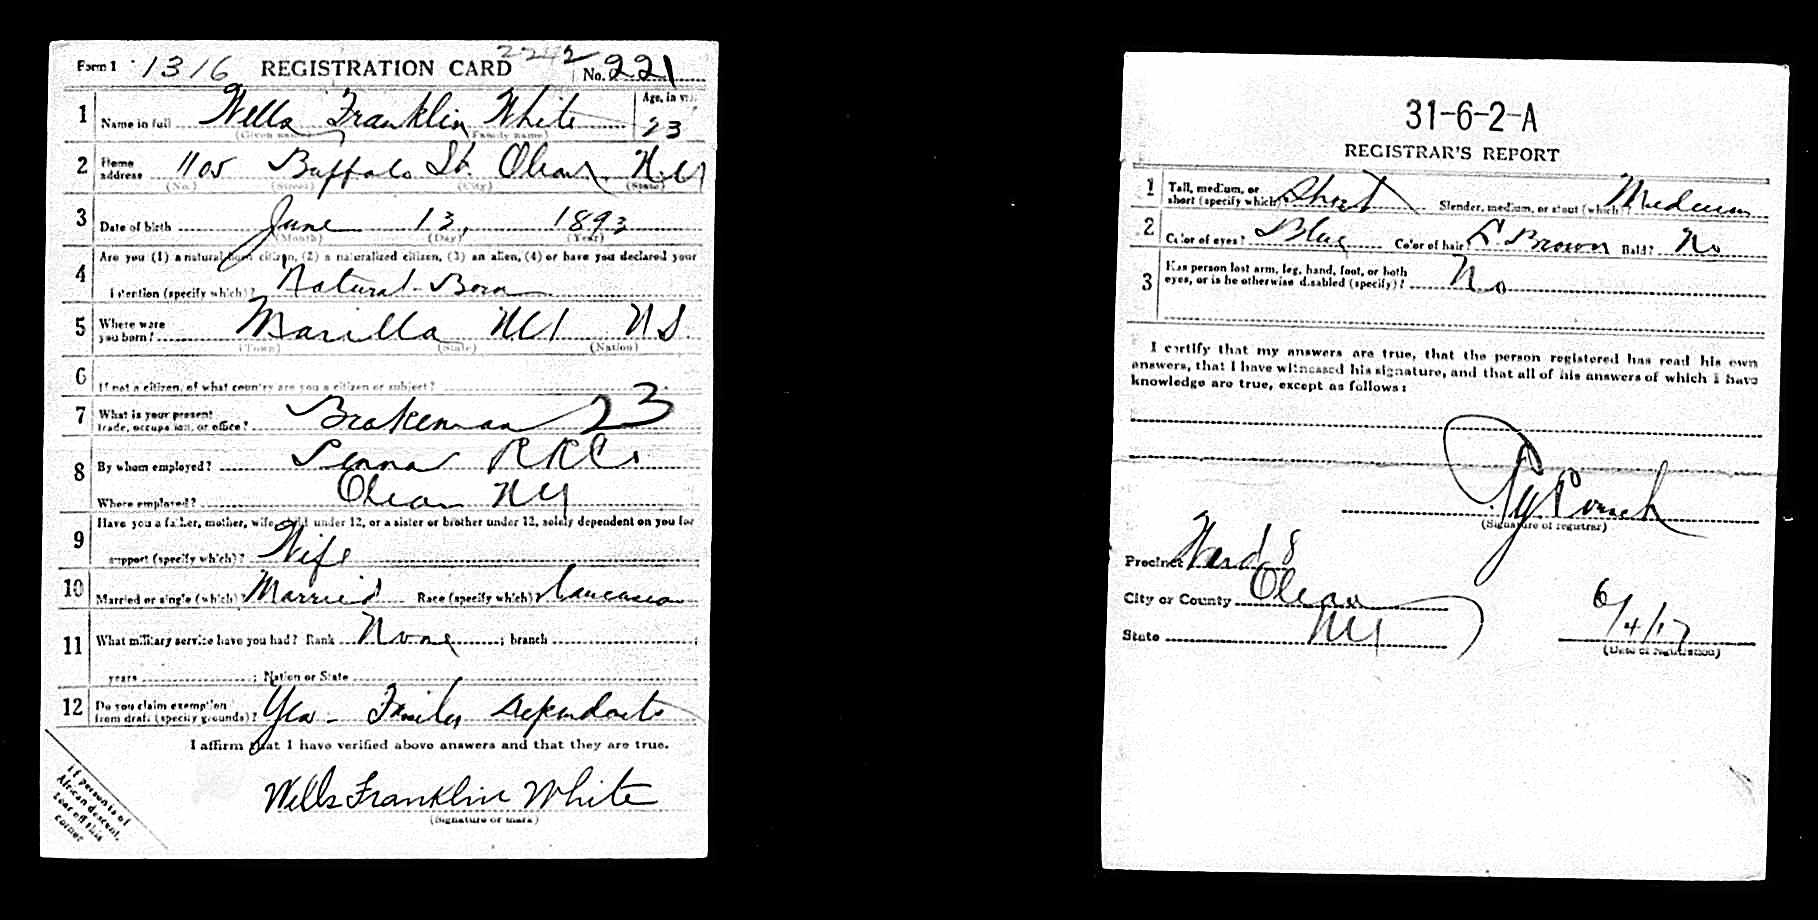 Form 1 1316 REGISTRATION CARD 2242 No. 221
1 Name in full Wells Franklin White Age, in yrs. 23
(Given name) (Family name)
2 Home address 1105 Buffalo St. Olean N.Y
(No.) (Street) (City) (State)
3 Date of birth June 13, 1893
(Month) (Day) (Year)
4 Are you (1) a natural-born citizen, (2) a naturalized citizen, (3) an alien, (4) or have you declared your
intention (specify which)? Natural-Born
5 Where were you born? Marilla NY US
(Town) (State) (Nation)
6 If not a citizen, of what country are you a citizen or subject?
7 What is your present trade, occupation, or office? Brakeman 23
8 By whom employed? Penna RRCo
Where employed? Olean NY
9 Have you a father, mother, wife, child under 12, or a sister or brother under 12, solely dependent on you for
support (specify which)? Wife
10 Married or single (which)? Married Race (specify which)? Caucasian
11 What military service have you had? Rank None ; branch ;
years ; Nation or State
12 Do you claim exemption from draft (specify grounds)? Yes - Family Dependants
I affirm that I have verified above answers and that they are true.
Wells Franklin White
(Signature or mark)
If person is of
African descent,
tear off this
corner
31-6-2-A
REGISTRAR'S REPORT
1 Tall, medium, or short (specify which)? Short Slender, medium, or stout (which)? Medium
2 Color of eyes? Blue Color of hair? L. Brown Bald? No
3 Has person lost arm, leg, hand, foot, or both
eyes, or is he otherwise disabled (specify)? No
I certify that my answers are true, that the person registered has read his own
answers, that I have witnessed his signature, and that all of his answers of which I have
knowledge are true, except as follows:
(Signature of registrar)
Precinct Ward 8
City or County Olean
State NY
6/4/17
(Date of registration)